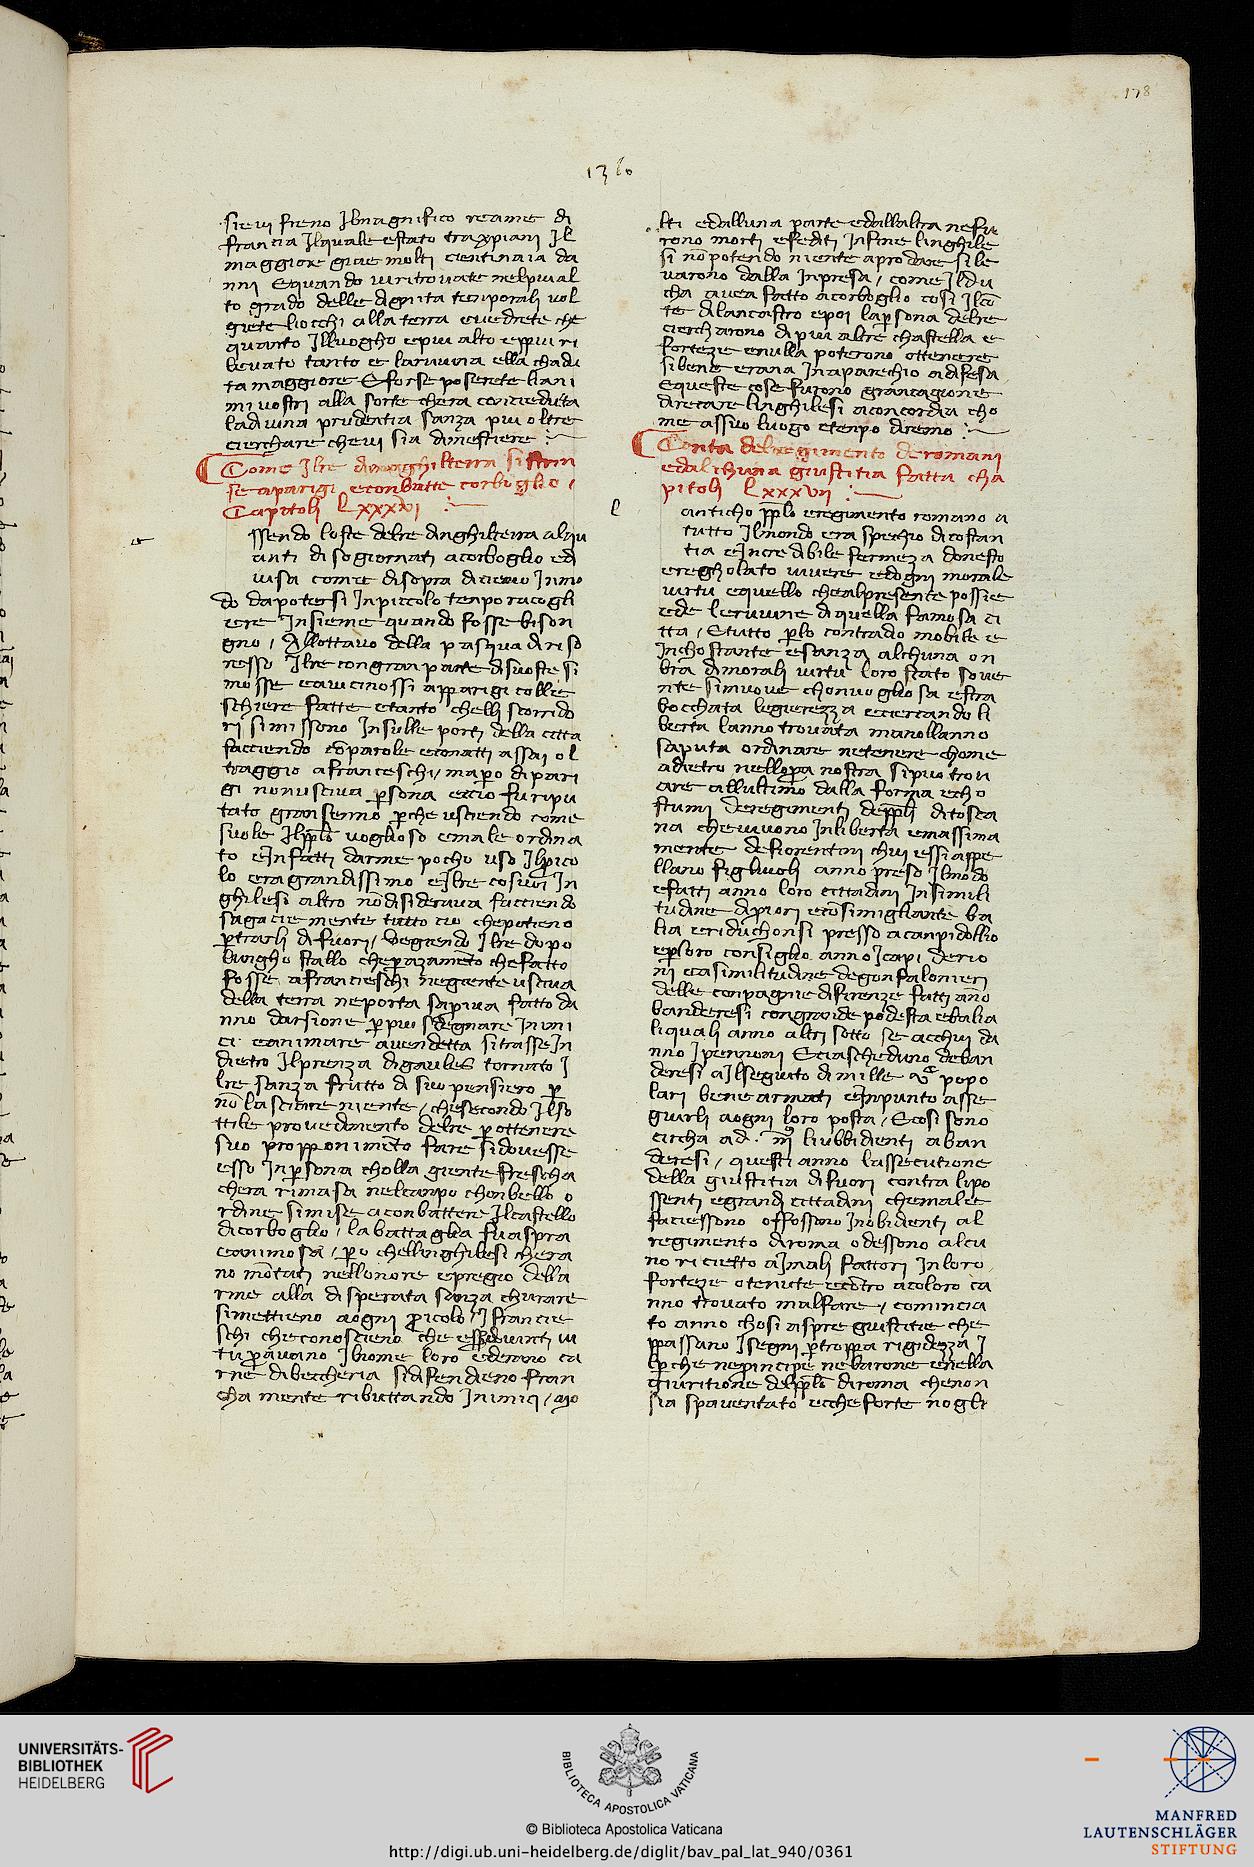 178
1360
sievi freno Ilmagnifico reame di
francia Ilquale estato traxpiani Il
maggiore giae molti cientinaia da
nni Equando vuritrovate nelpiu al
to grado delle dignita temporali vol
giete liocchi alla terra evedrete che
quanto Illuogho epiu alto eppiu ri
levato tanto e laruvina ella chadu
ta maggiore Eforse poserete liani
mi vostri alla sorte chera conceduta
ladivina prudentia sanza piu oltre
cierchare chevi sia dimestiere
Come Ilre
se aparigi econbatte corbuglio
Capitoli Lxxxvi
e
ssendo loste delre dinghilterra alqu
anti di sogiornati acorboglio ed
in
do dapotersi Inpiccolo tenpo racogli
ere Insieme quando fosse bison
gno / Allottavo della pasqua di riso
resso Ilre congran parte disuoste si
mosse eavicinossi apparigi colle
schiere fatte etanto chelli scorrido
ri simissono Insulle porti della citta
facciendo co parole econatti assai ol
traggio afranceschi / mapo di pari
gi nonusciva persona eccio fu ripu
tato gransenno perche usciendo come
suole Ilpplo voglioso emale ordina
to eInfatti darme pocho uso Ilperico
lo era grandissimo eIlre cosuoi In
ghilesi altro nodisiderava facciendo
sagaciemente tutto cio chepoteno
pertrarli difuori / Veggiendo Ilre dopo
lungho stallo cheperazameto chefatto
fosse afrancieschi negiente usciva
della terra neporta sapiva fatto da
nno darsione perpiu sdegnare Inimi
ci eanimare avendetta sitrasseIn
dietro Ilprenza digaules tornato I
lre sanza frutto di suo pensiero per
no lasciare niente / chesecondo Ilso
ttile provedimento delre perottenere
suo propponimeto fare sidovesse
esso Inpersona cholla giente frescha
chera rimasa nelcanpo chonbello o
rdine simise aconbattere Ilcastello
dicorboglio / labattaglia fu aspra
eanimosa / pero chellinghilesi chera
no motati nellonore epregio della
rme alla disperata sanza churare
simettieno aogni pericolo / I francie
schi checonoscieno che essendo vinti in
tu peravano Ibuome loro ederano ca
rne dibeccheria sidifendieno fran
chamente ributtando Inimici / mo
lti edalluna parte edallaltra nefu
rono morti efediti Infine linghile
si nopotendo niente aprodare sile
varono dalla Inpresa / come Ildu
cha avea fatto acorboglio cosi Ilco
te dilancastro epoi lapersona delre
cierchorono dipiu altre chastella e
forteze enulla poterono ottenere
sibene erano Inaparechio adifesa
Equeste cose furono grancagione
direcare linghilesi aconcordia cho
me assuo luogo etenpo diremo
Conta delregimento deromani
edalchuna giustitia fatta cha
pitoli Lxxxvii
l
anticho pplo eregimento romano a
tutto Ilmondo era spechio dicostan
tia eIncredibile fermeza donesto
eregholato vivere edogni morale
virtu equello chealpresente possie
ede leruvine diquella famosa ci
tta / Etutto perlo contrado mobile e
Inchostante esanza alchuna on
bra dimorali virtu loro stato sove
nte simuove chonvogliosa estra
bocchata legierezza ecercando li
berta lanno trovata manollanno
saputa ordinare netenere chome
adietro nellopera nostra sipuo trov
are allultimo dalla forma echo
stumi deregimenti deppli ditosca
na chevivono Inliberta emassima
mente defiorentini chui essi appe
llano figliuoli anno preso Ilmodo
efatti anno loro cittadini Insimili
tudine dipriori ecosimigliante ba
lia eriduchonsi presso acanpidollio
eperloro consiglio anno Icapi derio
ni easimilitudine degonfalonieri
delle conpagnie difirenze fatti ano
banderesi congrande podesta ebalia
liquali anno altri sotto se acchui da
nno Ipennoni Eciascheduno deban
deresi aIlseguito dimille popo
lari bene armati eInpunto asse
guirli aogni loro posta / Ecosi sono
circha ad liubbidienti aban
deresi / questi anno lassecutione
della giustitia difuori contra lipo
ssenti egrandi cittadini chemale
faciessono offossono Inobidienti al
regimento diroma odessono alcu
no ricietto aImali fattori Inloro
forteze otenute ecotro acoloro ca
nno trovato malfare / comincia
to anno chosi aspre giustitie che
ppassano Isegni pertroppa rigidezza I
lperche neprincipe nebarone enella
giuritione delpplo diroma chenon
sia spaventato ecche forte nogli
UNIVERSITÄTS-
BIBLIOTHEK
HEIDELBERG
BIBLIOTECA APOSTOLICA VATICANA
© Biblioteca Apostolica Vaticana
http://digi.ub.uni-heidelberg.de/diglit/bav_pal_lat_940/0361
MANFRED
LAUTENSCHLÄGER
STIFTUNG